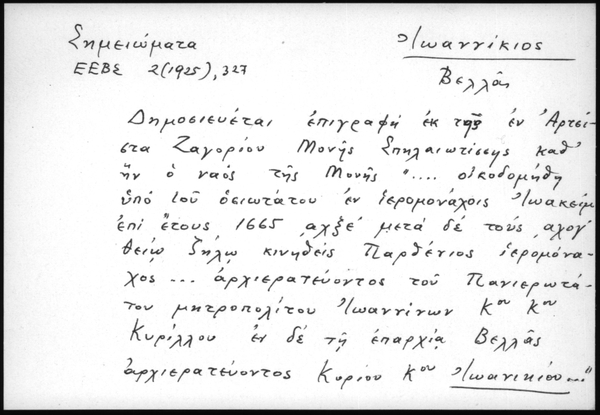 Σημειώματα
Ἰωαννίκιος
ΕΕΒΣ 2(1925), 327
Βελλᾶς
Δημοσιεύεται ἐπιγραφή ἐκ τῆς ἐν Ἀρτσί-
στα Ζαγορίου Μονῆς Σπηλαιωτίσσης καθ'
ἥν ὁ ναός τῆς Μονῆς ".... οἰκοδομήθη
ὑπό τοῦ ὁσιωτάτου ἐν ἱερομονάχοις Ἰωακείμ
ἐπί ἔτους 1665 ͵αχξε' μετά δέ τούς ͵αχογ'
θείῳ ζήλῳ κινηθείς Παρθένιος ἱερομόνα-
χος ... ἀρχιερατεύοντος τοῦ Πανιερωτά-
του μητροπολίτου Ἰωαννίνων Κου Κου
Κυρίλλου ἐν δέ τῇ ἐπαρχίᾳ Βελλᾶς
ἀρχιερατεύοντος Κυρίου Κου Ἰωανικίου..."